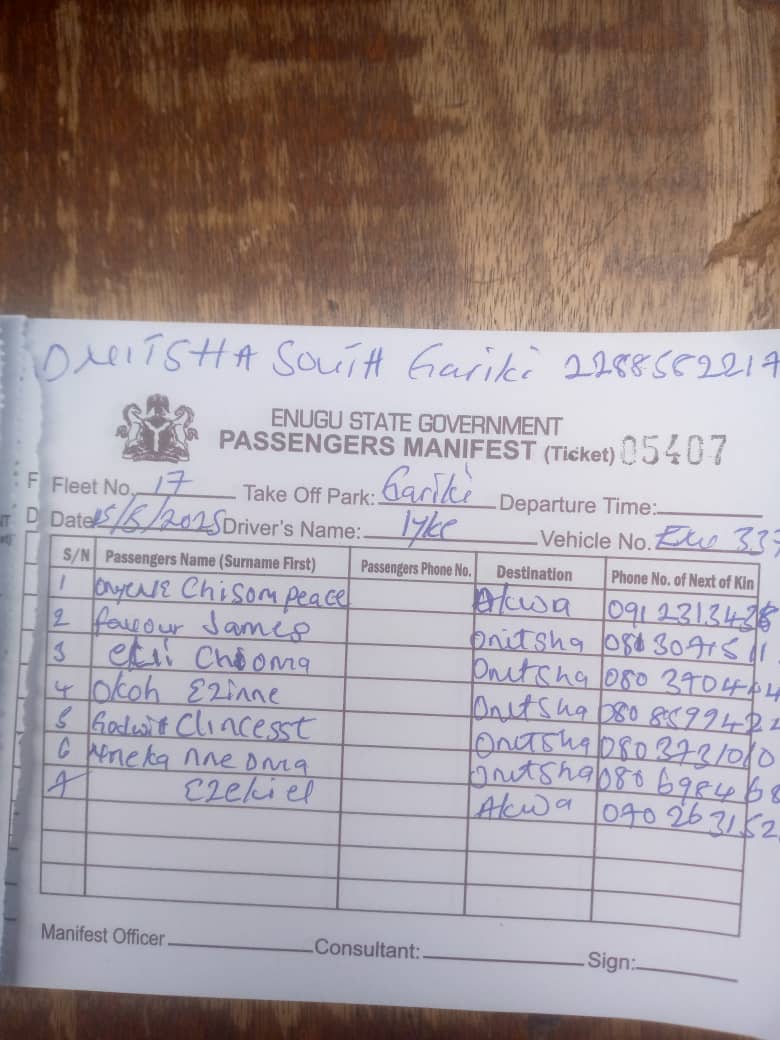 ONITSHA SOUTH Gariki 2288582217
ENUGU STATE GOVERNMENT
PASSENGERS MANIFEST (Ticket) 05407
F Fleet No. 17 Take Off Park: Gariki Departure Time:
D Date 15/5/2025 Driver's Name: Iyke Vehicle No. 337
S/N Passengers Name (Surname First) Passengers Phone No. Destination Phone No. of Next of Kin
1 Chisom peace Akwa 091 2313438
2 favour James Onitsha 081 3091511
3 Chioma Onitsha 080 370444
4 Okoh Ezinne Onitsha 080 8599422
5 Godwit Clincesst Onitsha 080 3731010
6 Nneka nne oma Onitsha 080 698468
7 Ezekiel Akwa 070 263152
Manifest Officer Consultant: Sign: